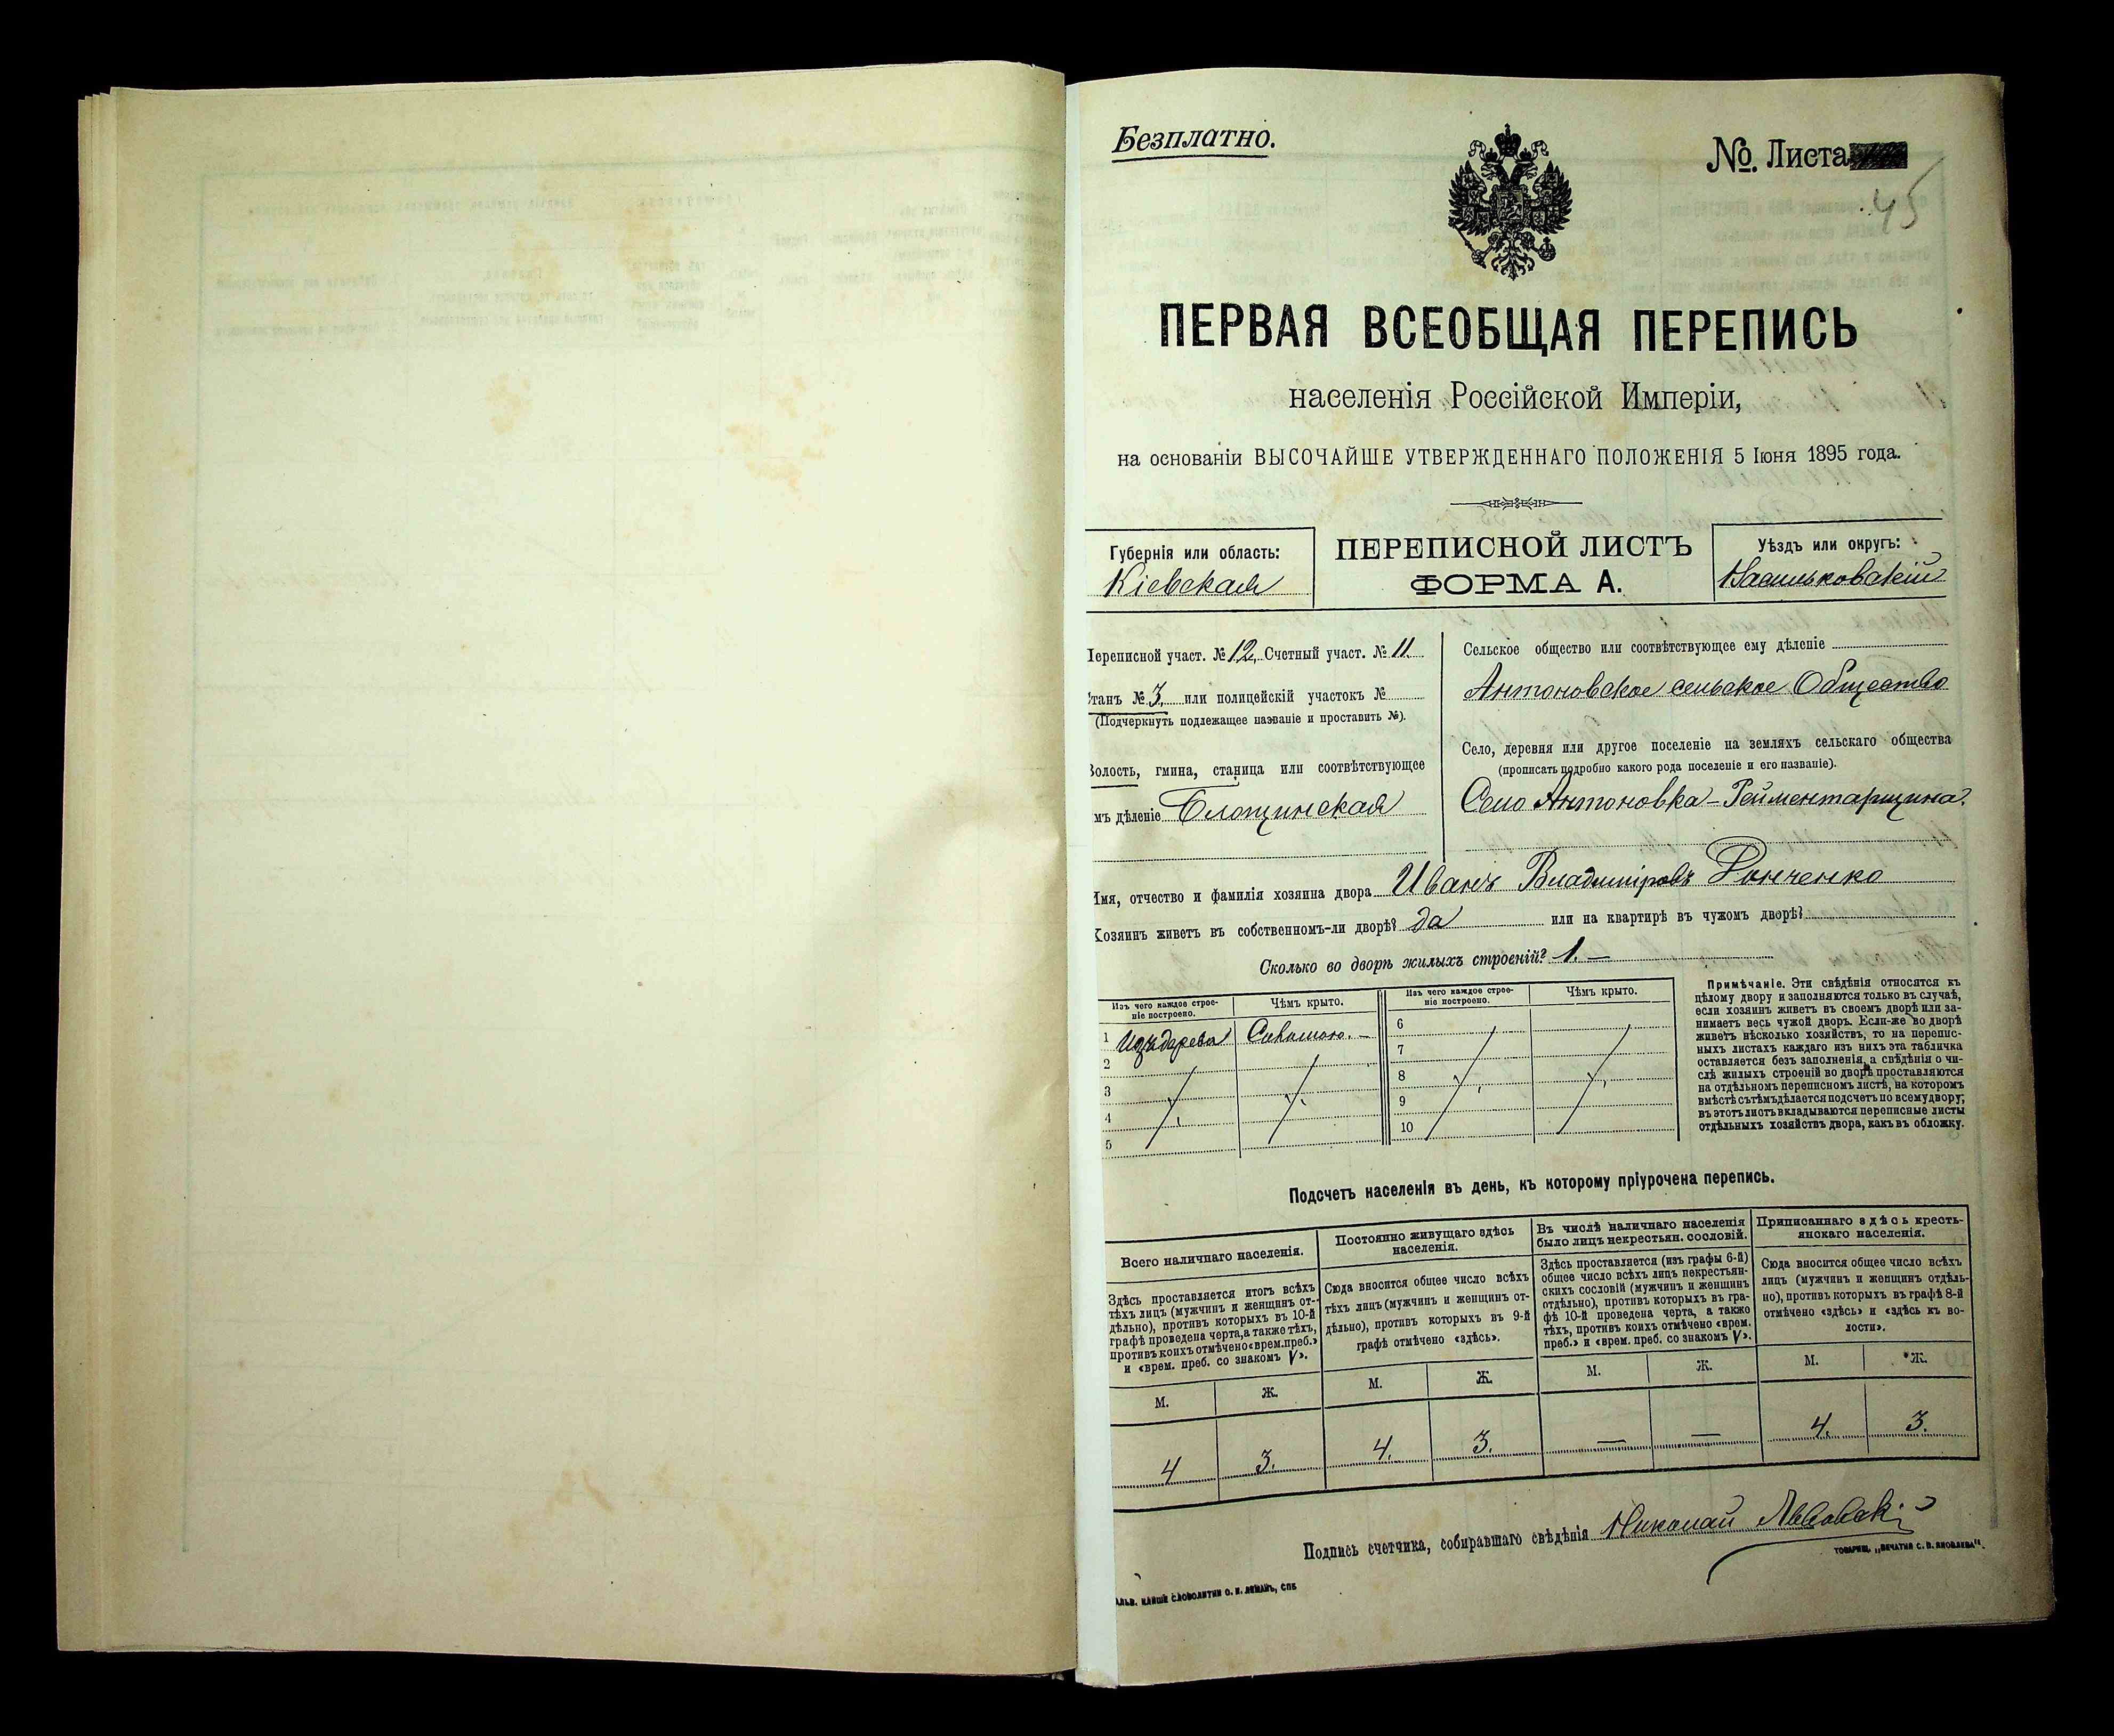 Безплатно.
№ Листа
45
ПЕРВАЯ ВСЕОБЩАЯ ПЕРЕПИСЬ
населенія Россійской Имперіи,
на основаніи ВЫСОЧАЙШЕ УТВЕРЖДЕННАГО ПОЛОЖЕНІЯ 5 Іюня 1895 года.
Губернія или область:
Кіевская
ПЕРЕПИСНОЙ ЛИСТЪ
ФОРМА А.
Уѣздъ или округъ:
Васильковскій
Переписной участ. № 12, Счетный участ. № 11.
Станъ № 3, или полицейскій участокъ №
(Подчеркнуть подлежащее названіе и проставить №).
Волость, гмина, станица или соотвѣтствующее
имъ дѣленіе Блощинская
Сельское общество или соотвѣтствующее ему дѣленіе
Антоновское сельское Общество
Село, деревня или другое поселеніе на земляхъ сельскаго общества
(прописать подробно какого рода поселеніе и его названіе).
Село Антоновка-Рейментарщина.
Имя, отчество и фамилія хозяина двора Иванъ Владиміровъ
Хозяинъ живетъ въ собственномъ-ли дворѣ? да или на квартирѣ въ чужомъ дворѣ?
Сколько во дворѣ жилыхъ строеній? 1. —
Изъ чего каждое строе-
ніе построено.
Чѣмъ крыто.
Изъ чего каждое строе-
ніе построено.
Чѣмъ крыто.
1 Изъ дерева Соломою. —
2
3
4
5
6
7
8
9
10
Примѣчаніе. Эти свѣдѣнія относятся къ
цѣлому двору и заполняются только въ случаѣ,
если хозяинъ живетъ въ своемъ дворѣ или за-
нимаетъ весь чужой дворъ. Если-же во дворѣ
живетъ нѣсколько хозяйствъ, то на перепис-
ныхъ листахъ каждаго изъ нихъ эта табличка
оставляется безъ заполненія, а свѣдѣнія о чи-
слѣ жилыхъ строеній во дворѣ проставляются
на отдѣльномъ переписномъ листѣ, на которомъ
вмѣстѣ съ тѣмъ дѣлается подсчетъ по всему двору;
въ этотъ листъ вкладываются переписные листы
отдѣльныхъ хозяйствъ двора, какъ въ обложку.
Подсчетъ населенія въ день, къ которому пріурочена перепись.
Всего наличнаго населенія.
Здѣсь проставляется итогъ всѣхъ
тѣхъ лицъ (мужчинъ и женщинъ от-
дѣльно), противъ которыхъ въ 10-й
графѣ проведена черта, а также тѣхъ,
противъ коихъ отмѣчено «врем. преб.»
и «врем. преб. со знакомъ V».
М. Ж.
4 3.
Постоянно живущаго здѣсь
населенія.
Сюда вносится общее число всѣхъ
тѣхъ лицъ (мужчинъ и женщинъ от-
дѣльно), противъ которыхъ въ 9-й
графѣ отмѣчено «здѣсь».
М. Ж.
4. 3.
Въ числѣ наличнаго населенія
было лицъ некрестьян. сословій.
Здѣсь проставляется (изъ графы 6-й)
общее число всѣхъ лицъ некрестьян-
скихъ сословій (мужчинъ и женщинъ
отдѣльно), противъ которыхъ въ гра-
фѣ 10-й проведена черта, а также
тѣхъ, противъ коихъ отмѣчено «врем.
преб.» и «врем. преб. со знакомъ V».
М. Ж.
— —
Приписаннаго здѣсь кресть-
янскаго населенія.
Сюда вносится общее число всѣхъ
лицъ (мужчинъ и женщинъ отдѣль-
но), противъ которыхъ въ графѣ 8-й
отмѣчено «здѣсь» и «здѣсь къ во-
лости».
М. Ж.
4. 3.
Подпись счетчика, собиравшаго свѣдѣнія Николай
ТОВАРИЩ. „ПЕЧАТНЯ С. П. ЯКОВЛЕВА".
СЛОВОЛИТНИ О. И. ЛЕМАНЪ, СПБ